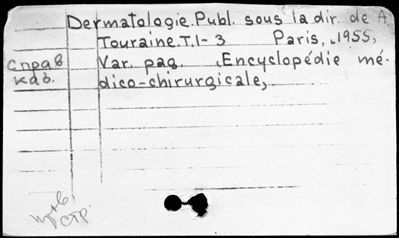 Dermatologie. Publ. sous la dir. de A.
Touraine. T. 1-3 Paris, 1955,
Справ Var. pag. Encyclopédie mé-
каб. dico-chirurgicale,
стр.